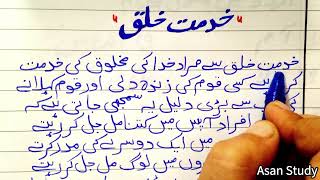 "خدمت خلق"
خدمت خلق سے مراد خدا کی مخلوق کی خدمت
کرنا ہے کسی قوم کی زندہ دلی اور قوم کہلانے
سب سے بڑی دلیل یہ سمجھی جاتی ہے کہ
افراد آپس میں کتنا مل جل کر رہتے
میں ایک دوسرے کی مدد کرتے
میں لوگ مل جل کر رہتے
Asan Study